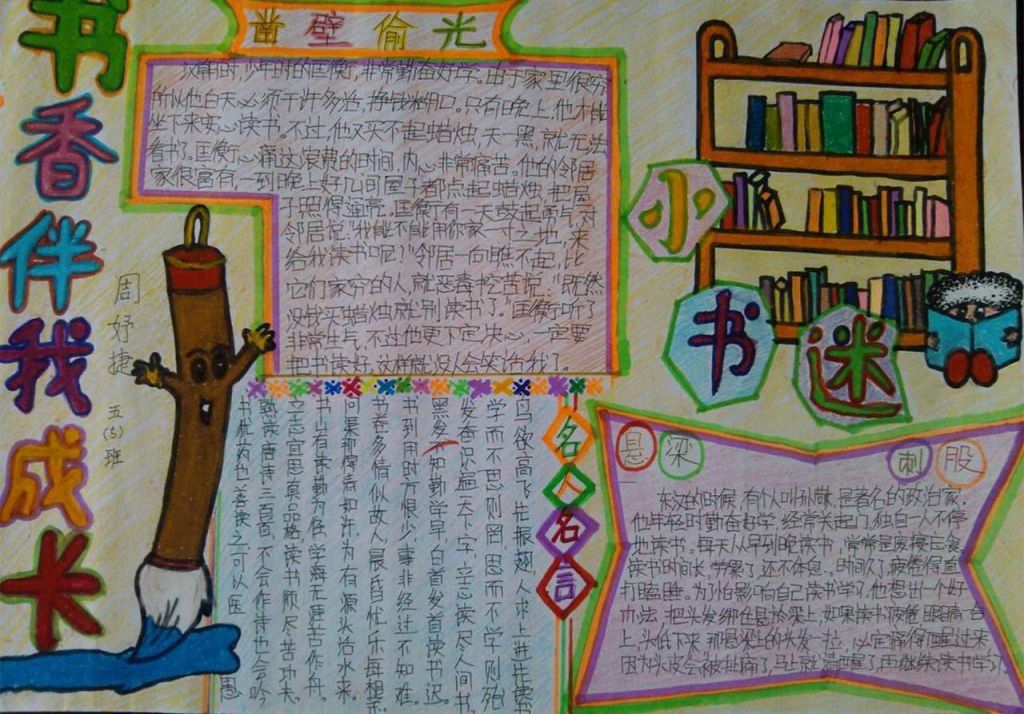 书香伴我成长
周妤捷
五(5)班
凿壁偷光
汉朝时,少年时的匡衡,非常勤奋好学。由于家里很穷
所以他白天必须干许多活,挣钱糊口。只有晚上,他才能
坐下来安心读书。不过,他又买不起蜡烛,天一黑,就无法
看书了。匡衡心痛这浪费的时间,内心非常痛苦。他的邻居
家很富有,一到晚上好几间屋子都点起蜡烛,把屋
子照得通亮。匡衡有一天鼓起勇气,对
邻居说:"我能不能用你家一寸之地,来
给我读书呢?"邻居一向瞧不起,比
它们家穷的人,就恶毒挖苦说:"既然
没钱买蜡烛就别读书了。"匡衡听了
非常生气,不过他更下定决心,一定要
把书读好,这样就没人会笑话我了。
小书迷
名人名言
鸟欲高飞先振翅,人求上进先读书
学而不思则罔,思而不学则殆
发奋识遍天下字,立志读尽人间书
黑发不知勤学早,白首发首读书迟。
书到用时方恨少,事非经过不知难。
书卷多情似故人,晨昏忧乐每相亲
问渠那得清如许,为有源头活水来。
书山有径勤为径,学海无涯苦作舟。
立志宜思真品格,读书须尽苦功夫
熟读唐诗三百首,不会作诗也会吟
书犹药也,善读之可以医愚
悬梁刺股
东汉的时候,有个人叫孙敬,是著名的政治家,
他年轻时勤奋好学,经常关起门,独自一人不停
地读书。每天从早到晚读书,常常是废寝忘食。
读书时间长,劳累了,还不休息。时间久了,疲倦得直
打瞌睡。为了怕影响自己读书学习,他想出一个好
办法,把头发绑住悬於梁上,如果读书疲惫,眼睛一合
上,头低下来,那悬梁上的头发一拉,必定痛得醒过来
因为头皮会被扯痛了,马上就清醒了,再继续读书学习